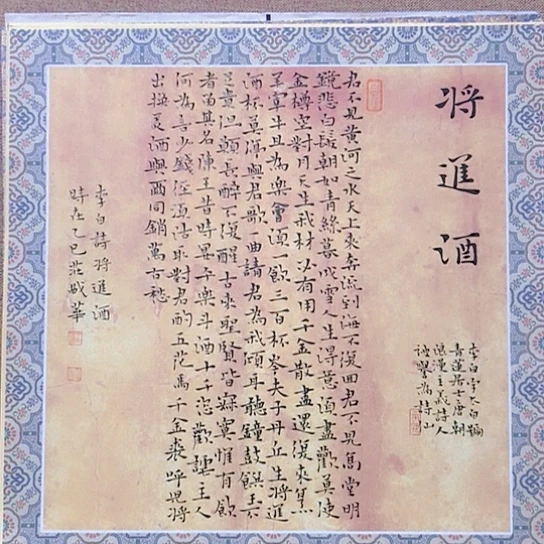 将進酒
李白字太白號
青蓮居士唐朝
浪漫主義詩人
被譽為詩仙
君不見黄河之水天上來奔流到海不復回君不見高堂明
鏡悲白髮朝如青絲暮成雪人生得意須盡歡莫使
金樽空對月天生我材必有用千金散盡還復來烹
羊宰牛且為樂會須一飲三百杯岑夫子丹丘生將進
酒杯莫停與君歌一曲請君為我傾耳聽鐘鼓饌玉不
足貴但願長醉不復醒古來聖賢皆寂寞惟有飲
者留其名陳王昔時宴平樂斗酒十千恣歡謔主人
何為言少錢徑須沽取對君酌五花馬千金裘呼兒將
出換美酒與爾同銷萬古愁
李白詩將進酒
時在乙巳莊敏華